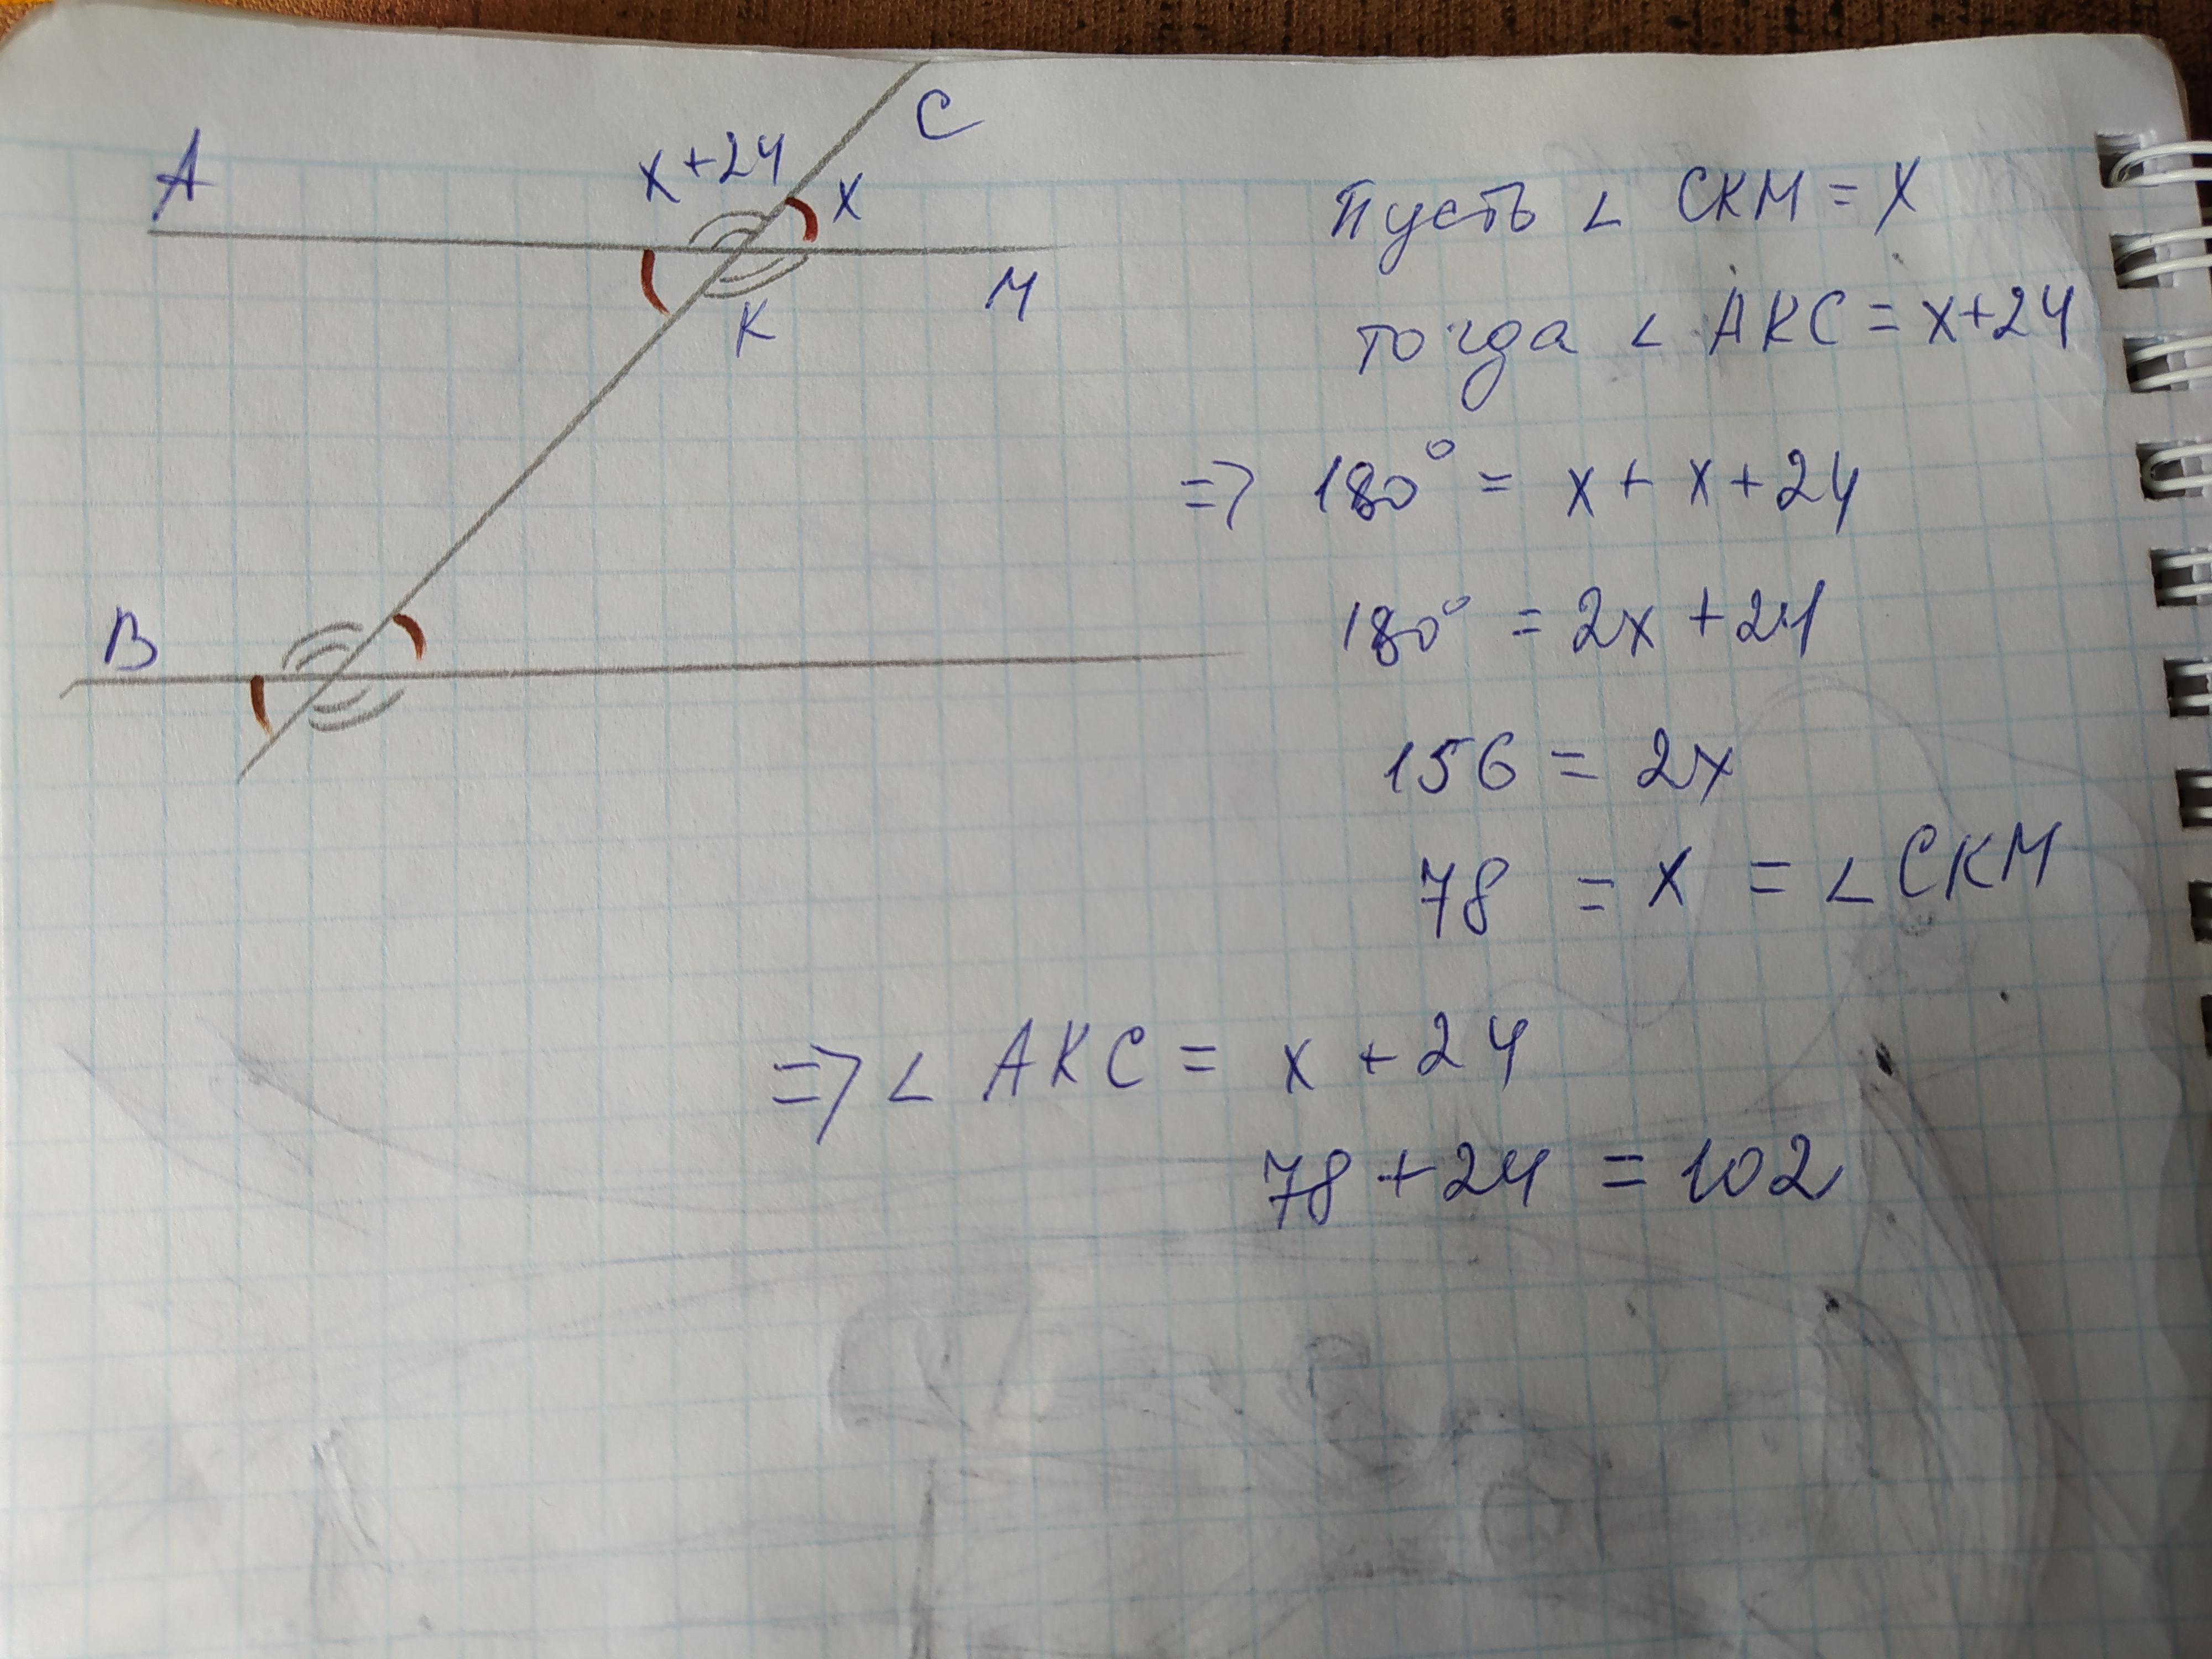 A
C
x+24
x
K
M
B
Пусть ∠ CKM = x
тогда ∠ AKC = x+24
=> 180° = x + x + 24
180° = 2x + 24
156 = 2x
78 = x = ∠ CKM
=> ∠ AKC = x + 24
78 + 24 = 102